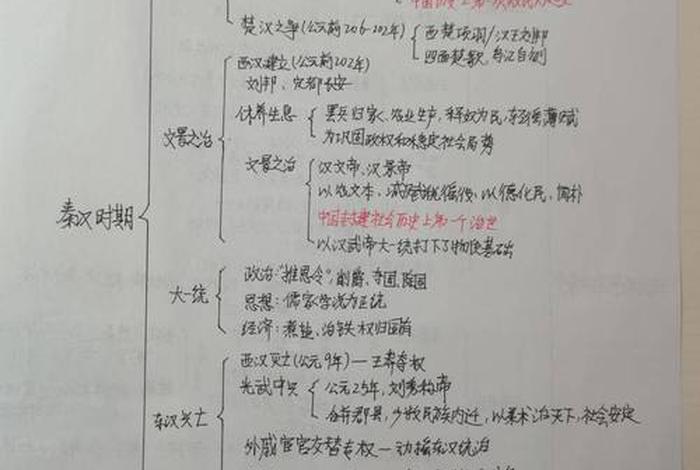 楚汉之争(公元前206-202年)
西楚项羽/汉王刘邦
四面楚歌、乌江自刎
西汉建立(公元前202年)
刘邦、定都长安
休养生息
罢兵归家、农业生产、释奴为民、轻徭薄赋
为巩固政权和稳定社会局势
文景之治
文景之治
汉文帝、汉景帝
以农文本、减赋税徭役、以德化民、俭朴
中国封建社会历史上第一个治世
以汉武帝大一统打下了物质基础
秦汉时期
大一统
政治:"推恩令",削爵、夺国、除国
思想:儒家学说为正统
经济:煮盐、冶铁权归国有
东汉兴亡
西汉灭亡(公元9年)—王莽夺权
光武中兴
公元25年,刘秀称帝
合并郡县,少数民族内迁,以柔术治天下,社会安定
外戚宦官交替专权—动摇东汉统治